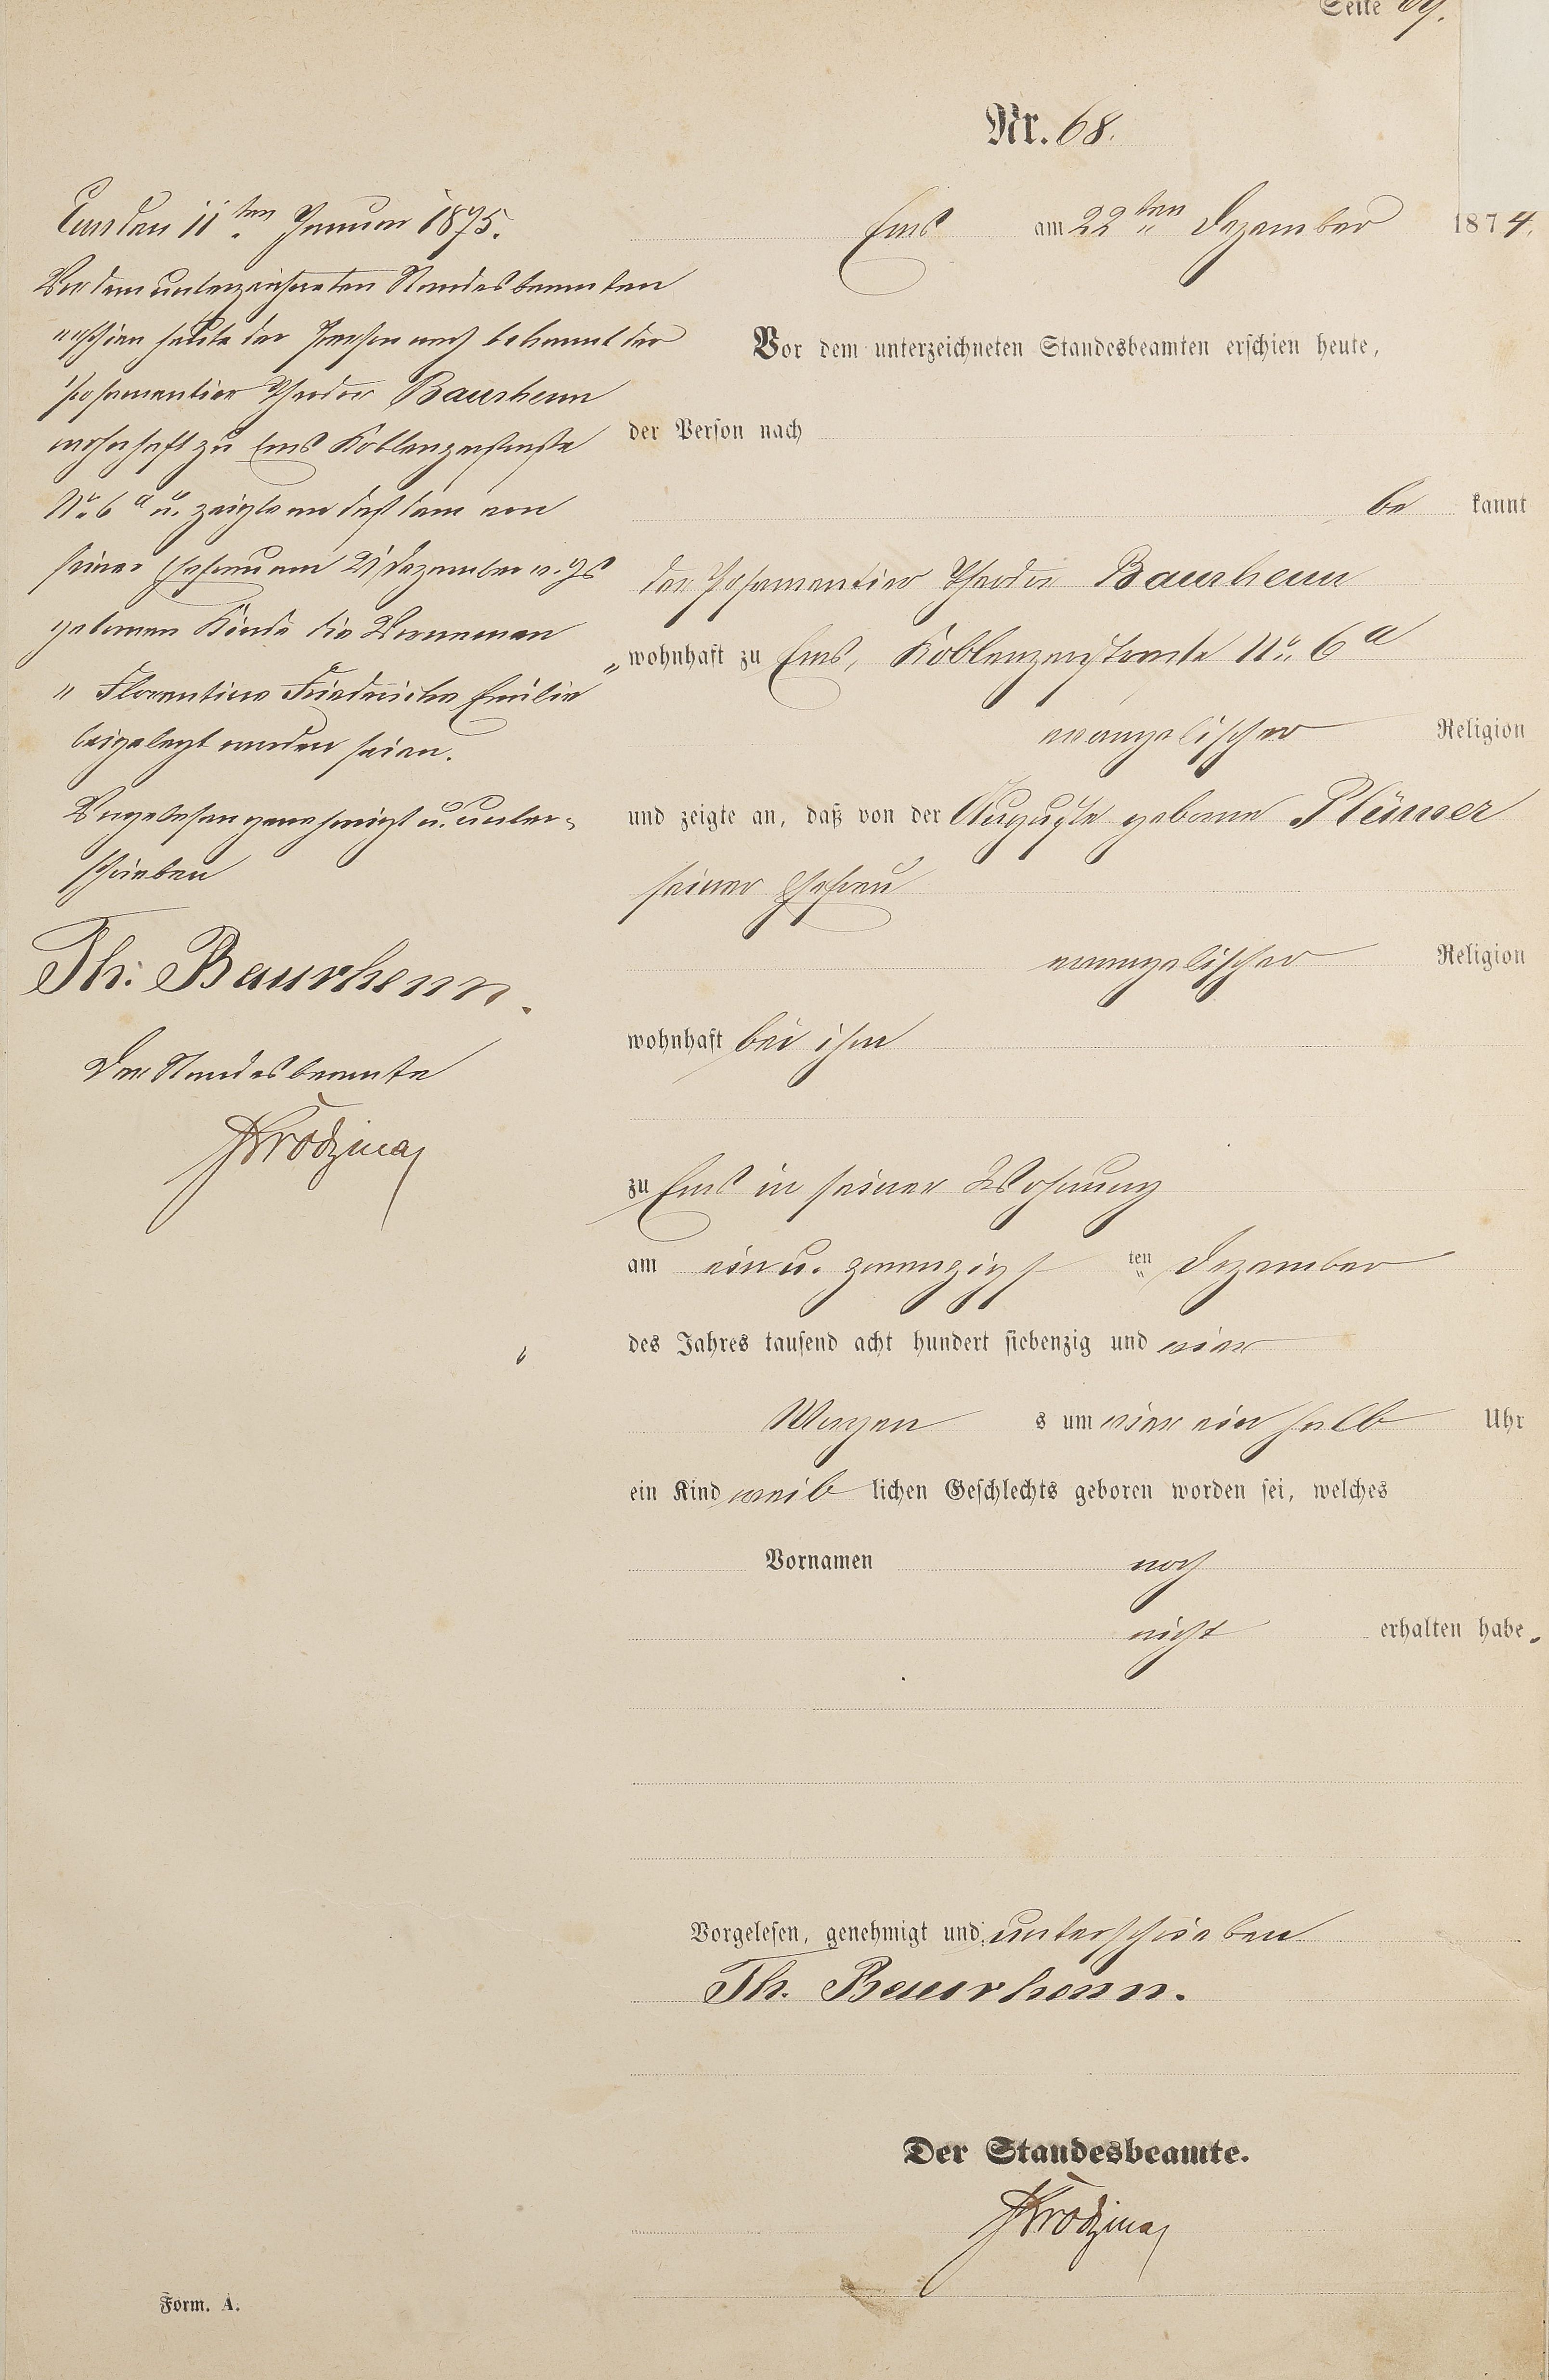 Seite 69.
Nr. 68.
Ems am 22ten Dezember 1874.
Vor dem unterzeichneten Standesbeamten erschien heute,
der Person nach
be kannt
der Posamentier Theodor Baurhenn
wohnhaft zu Ems, Koblenzerstraße No. 6a
evangelischer Religion
und zeigte an, daß von der Auguste geborne Plümer
seiner Ehefrau
evangelischer Religion
wohnhaft bei ihm
zu Ems in seiner Wohnung
am ein u. zwanzigs ten Dezember
des Jahres tausend acht hundert siebenzig und vier
Morgen s um vier ein halb Uhr
ein Kind weib lichen Geschlechts geboren worden sei, welches
Vornamen noch
nicht erhalten habe.
Vorgelesen, genehmigt und unterschrieben
Th. Baurhenn.
Der Standesbeamte.
Ems den 11ten Januar 1875.
Vor dem unterzeichneten Standesbeamten
erschien heute der Person nach bekannt der
Posamentier Theodor Baurhenn
wohnhaft zu Ems Koblenzerstraße
No. 6a u. zeigte an daß dem von
seiner Ehefrau am 21 Dezember v. Js
gebornen Kinde die Vornamen
" Florentine Friedericke Emilie "
beigelegt worden seien.
Vorgelesen genehmigt u. unter=
schrieben
Th: Baurhenn.
Der Standesbeamte
Form. A.